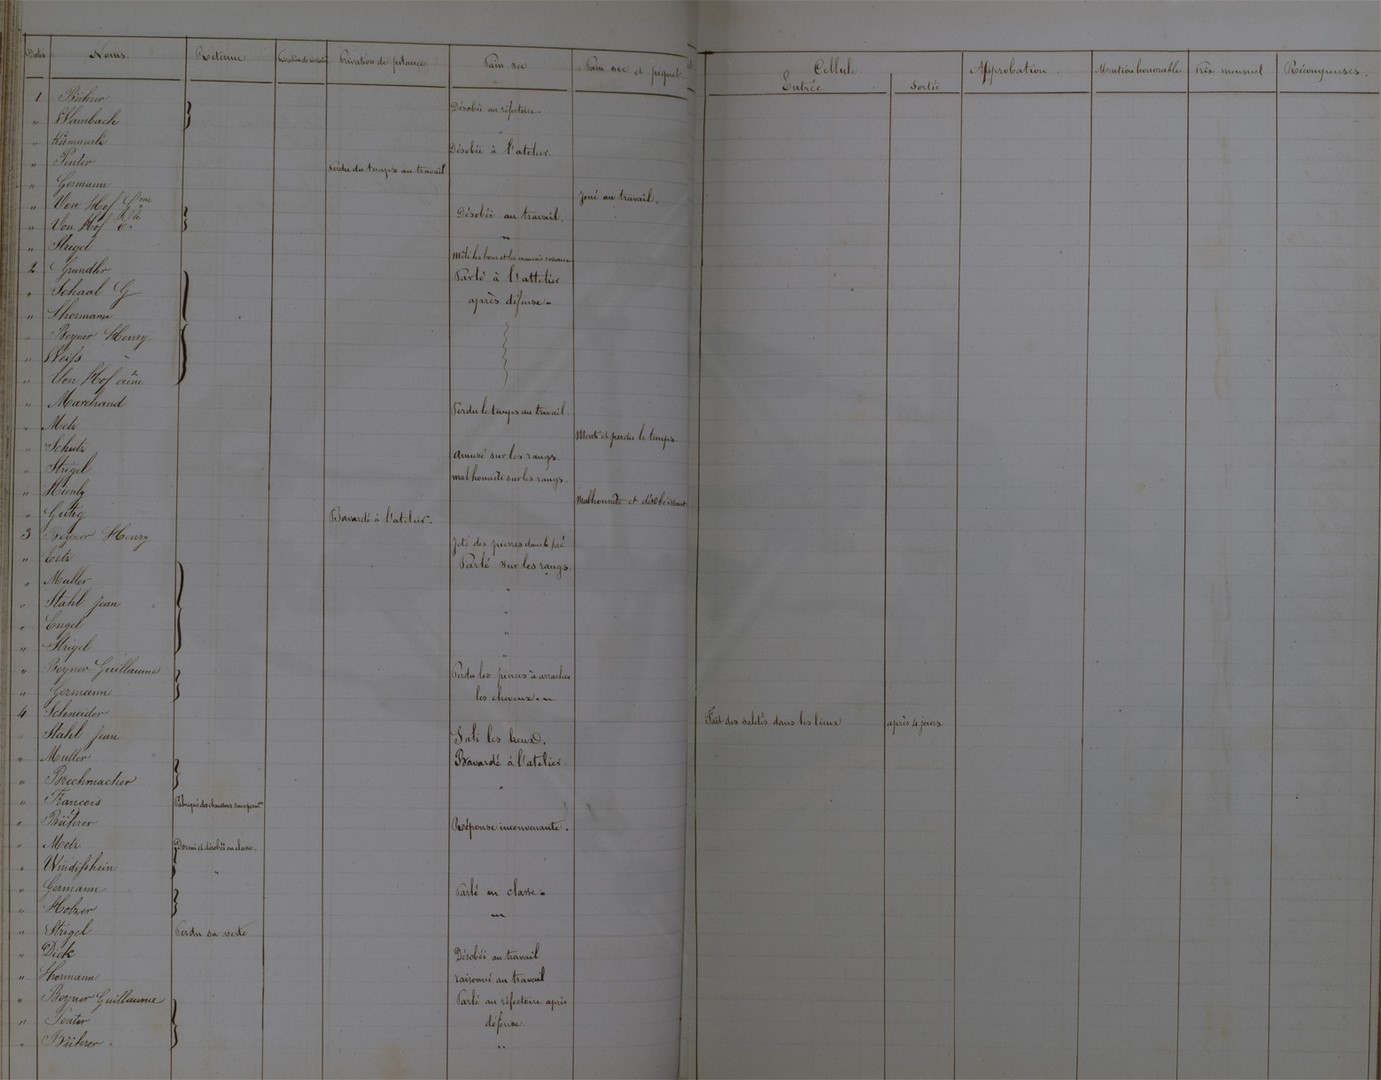 Dates Noms. Retenue Privation de pitance Pain sec Pain sec et piquet Cellule Approbation Mention honorable Prix mensuel Récompenses.
Entrée Sortie
1 Büterer
" Wambach Désobéi au réfectoire.
" Kümmerlé "
Désobéi à l'atelier.
" Senter Perdu du temps au travail
" Germann Joué au travail.
" Von Hof Gme
" Von Hof Désobéi au travail.
" Strigel Mêlé les bons et les mauvais
2 Grundler Parlé à l'attelier
" Schaal G après défense.
" Thormann
" Beyner Henry
" Weiss
" Von Hof aîné
" Marchand Perdu le temps au travail
" Metz Menti et perdu le temps
" Schutz Amusé sur les rangs.
" Strigel malhonnête sur les rangs.
" Malhonnête et désobéissant
" Bavardé à l'atelier.
3 Beyner Henry Jeté des pierres dans le pré
" Parlé sur les rangs.
" Muller "
" Stahl Jean "
" Engel "
" Strigel "
" Beyner Guillaume Perdu les pinces à arracher
" Germann les cheveux.
4 Schneider Fait des saletés dans les lieux après 4 jours
" Stahl Jean Sali les lieux.
" Muller Bavardé à l'atelier
" Brechmacher "
" François Fabriqué des chaussons
" Büterer Réponse inconvenante.
" Metz Dormi et désobéi en classe.
" Windisshein "
" Germann Parlé en classe.
" Holzer "
" Strigel Perdu sa veste
" Dick Désobéi au travail
" Thormann raisonné au travail
" Beyner Guillaume Parlé au réfectoire après
" Senter défense.
" Büterer "